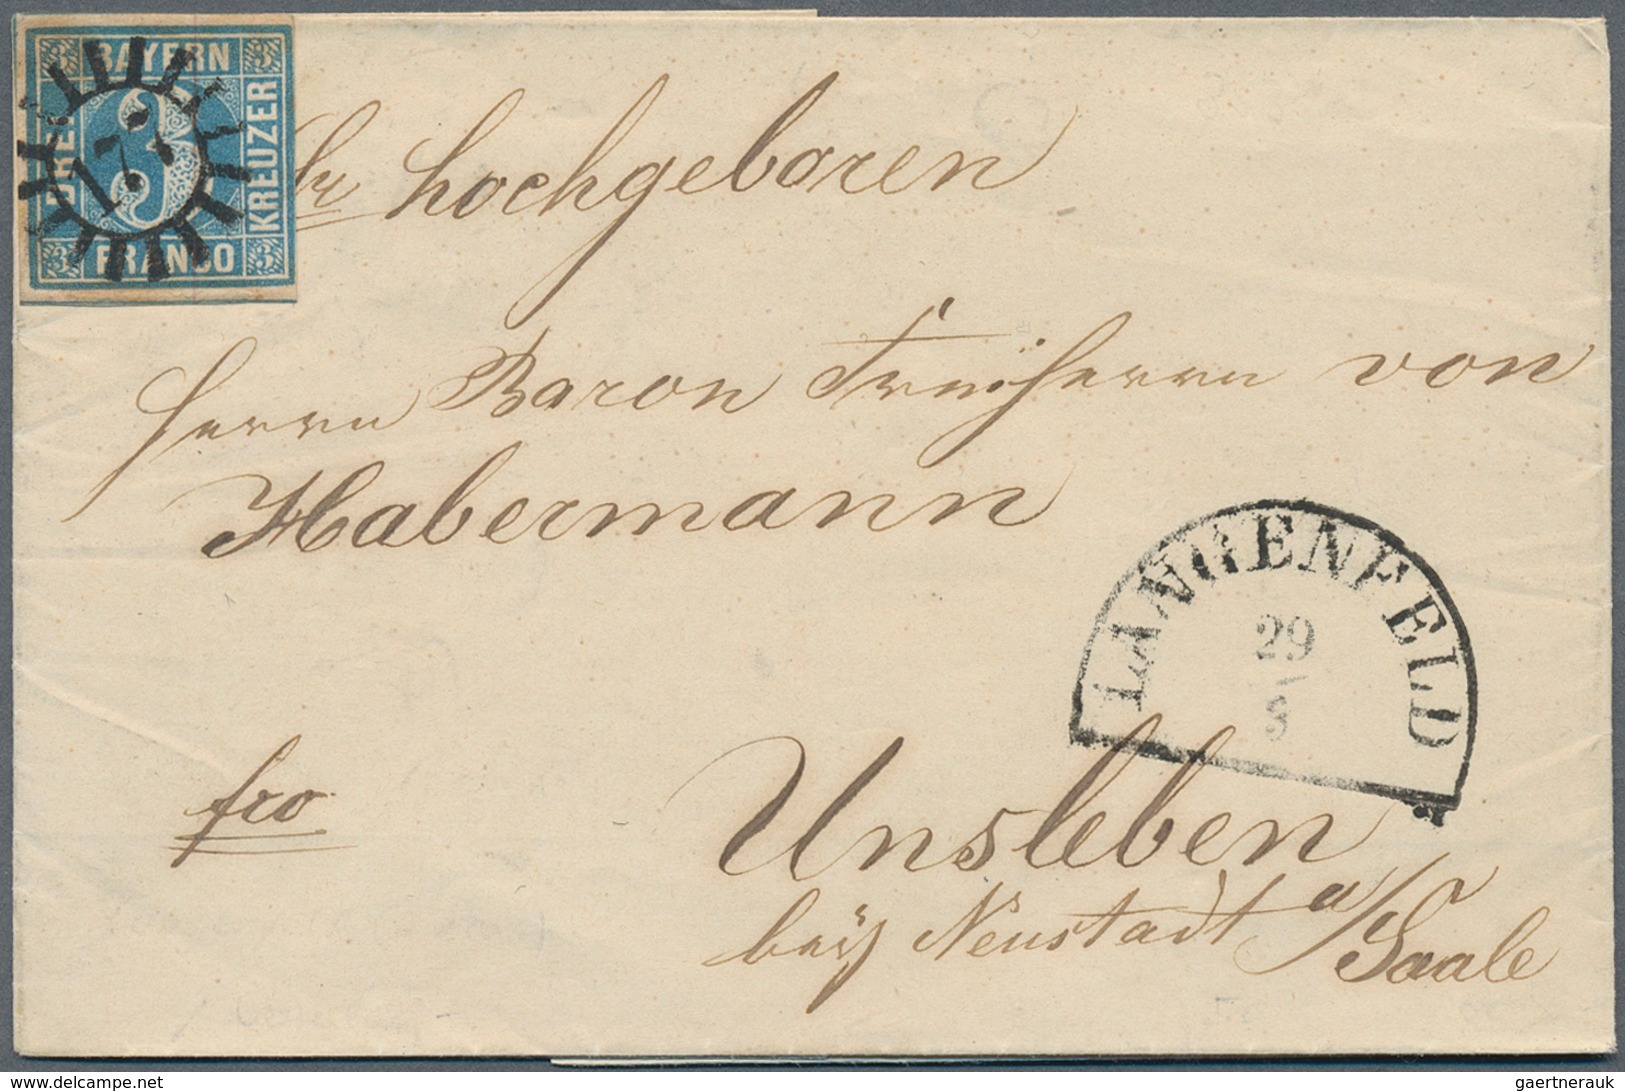 BAYERN
3 3
DREI
KREUZER
3
177
FRANCO
3 3
hochgeboren
Herrn Baron Freiherrn von
Habermann
LANGENFELD
29
8
fro
Unsleben
bey Neustadt a/Saale
www.delcampe.net
gaertnerauk